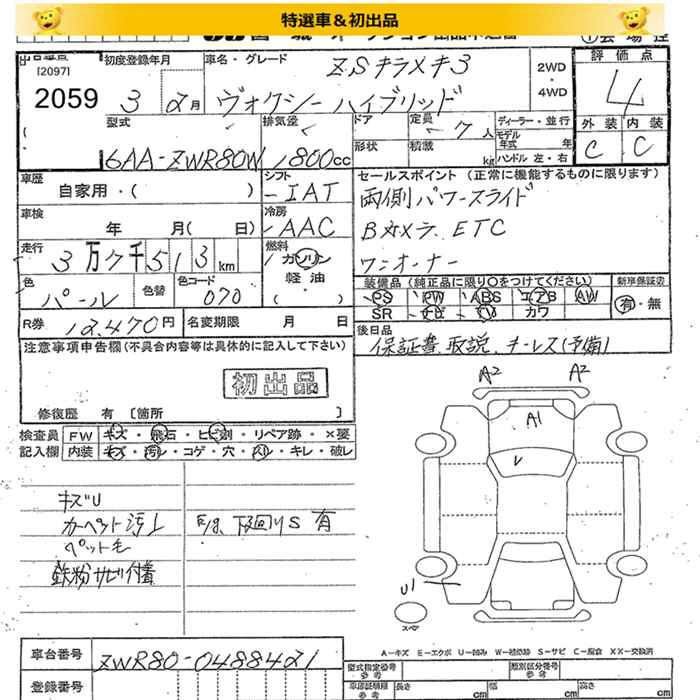 特選車＆初出品
[2097]
2059
初度登録年月
3 2月
車名・グレード
ZSキラメキ3
ヴォクシーハイブリッド
2WD
・
4WD
評価点
4
外装 内装
C C
型式
6AA-ZWR80W
排気量
1800cc
ドア
形状
定員 7人
積載 kg
ディーラー・並行
モデル年式 年
ハンドル 左・右
車歴
自家用・( )
シフト
IAT
セールスポイント (正常に機能するものに限ります)
両側パワースライド
Bカメラ. ETC
ワンオーナー
車検
年 月( 日)
冷房
AAC
走行
3万7千513km
燃料
ガソリン
軽油
( )
色
パール
色替
色コード
070
装備品 (純正品に限り○をつけてください)
PS PW ABS エアB AW
SR ナビ TV カワ
新車保証書
有・無
R券 12,470円
名変期限 月 日
後日品
保証書、取説、キーレス(予備)
注意事項申告欄(不具合内容等は具体的に記入して下さい)
初出品
修復歴 有 [箇所 ]
検査員
記入欄
FW キズ・飛石・ヒビ割・リペア跡・×要
内装 キズ・汚レ・コゲ・穴・スレ・キレ・破レ
A2 A2
A1
U1
スペア
キズU
カーペット汚レ
ペット毛
鉄粉サビ付着
下回りS 有
A－キズ E－エクボ U－凹み W－補修跡 S－サビ C－腐食 XX－交換済
車台番号
ZWR80-0488421
登録番号
型式指定番号
参考
類別区分番号
参考
車庫証明用
参考
長さ cm
幅 cm
高さ cm